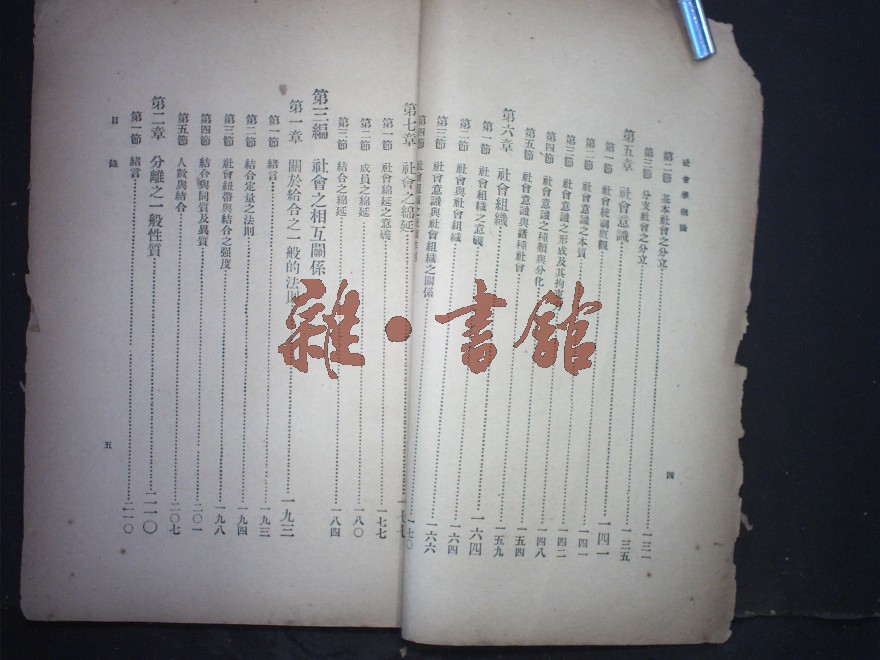 社會學概論
第二節 基本社會之分立 一三一
第三節 分支社會之分立 一三五
第五章 社會意識 一四一
第一節 社會統制概觀 一四一
第二節 社會意識之本質 一四二
第三節 社會意識之形成及其拘束 一四八
第四節 社會意識之種類與分化 一五四
第五節 社會意識與諸種社會 一五九
第六章 社會組織 一六四
第一節 社會組織之意義 一六四
第二節 社會與社會組織 一六六
第三節 社會意識與社會組織之關係 一七〇
第四節
四
第七章 社會之綿延 一七七
第一節 社會綿延之意義 一七七
第二節 成員之綿延 一八〇
第三節 結合之綿延 一八四
第三編 社會之相互關係
第一章 關於結合之一般的法則 一九三
第一節 緒言 一九三
第二節 結合定量之法則 一九四
第三節 社會紐帶與結合之强度 一九八
第四節 結合與同質及異質 二〇一
第五節 人數與結合 二〇七
第二章 分離之一般性質 二一〇
第一節 緒言 二一〇
目錄
五
雜·書館